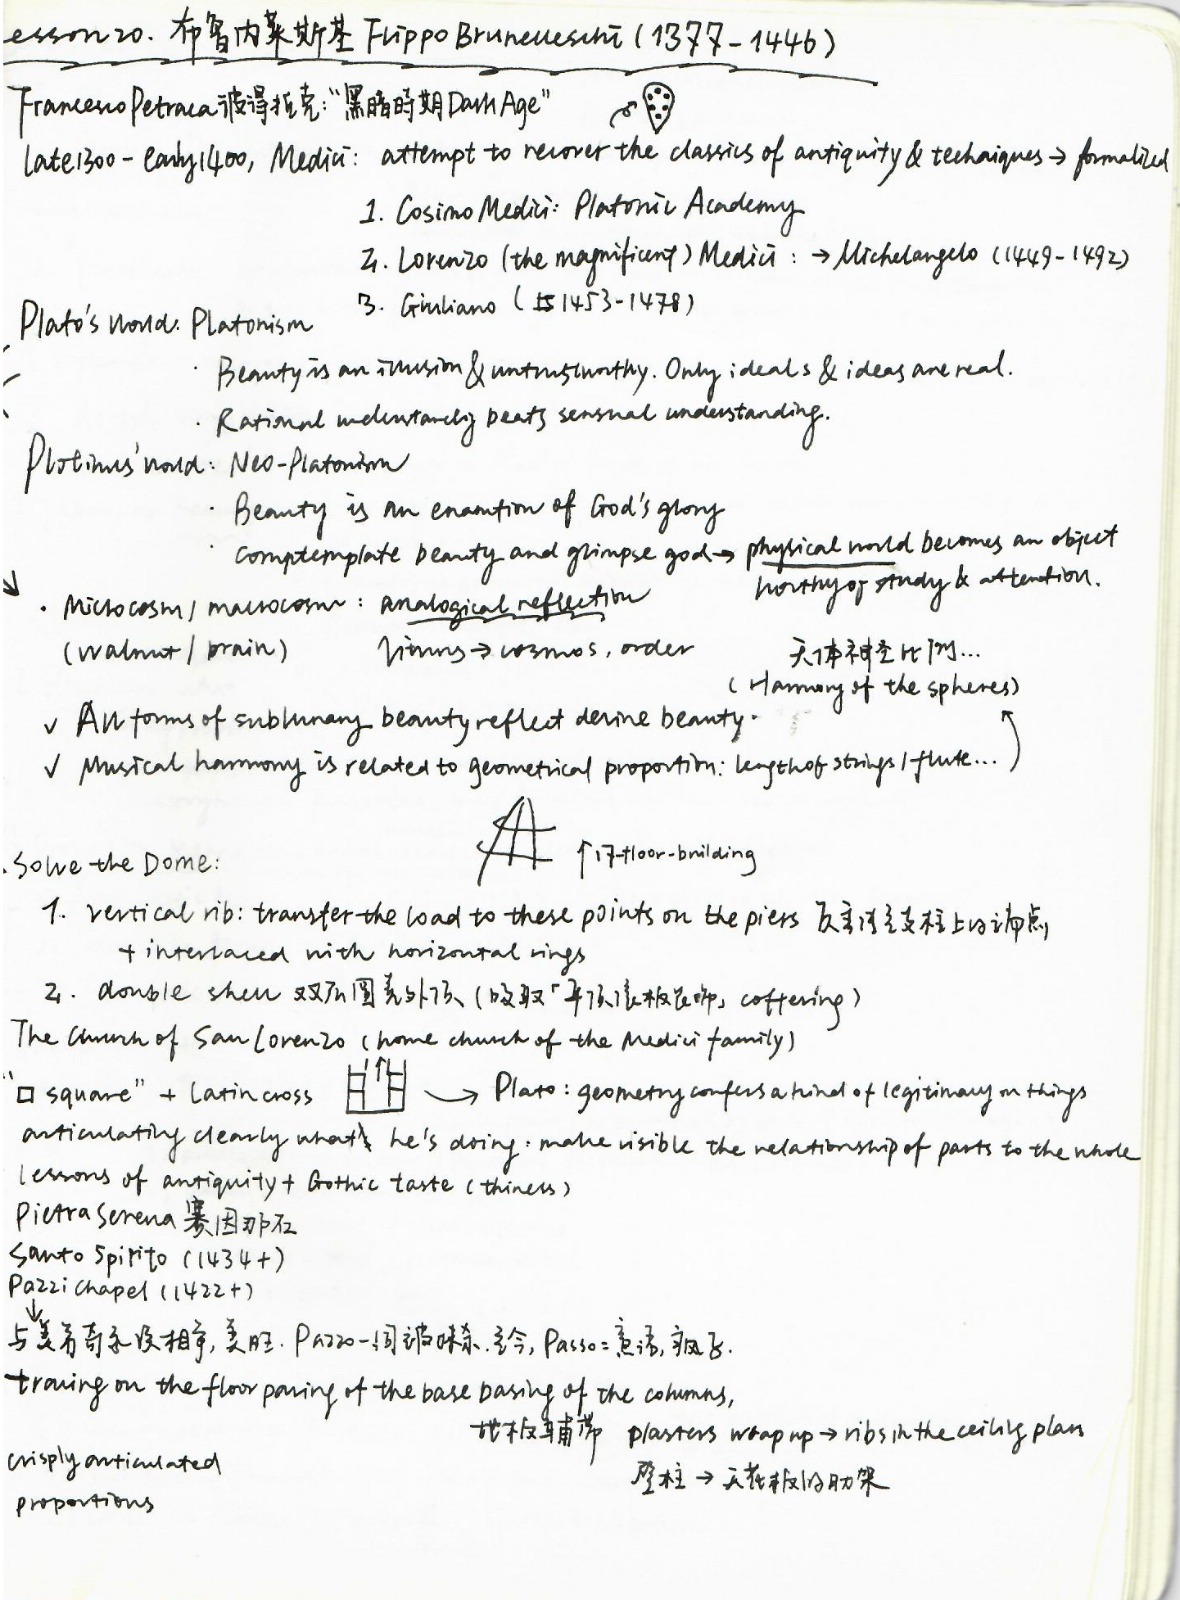 esson 20. 布鲁内莱斯基 Flippo Brunelleschi (1377-1446)
Francesco Petraca 彼得拉克: "黑暗時期 Dark Age"
Late 1300 - early 1400, Medici: attempt to recover the classics of antiquity & techniques → formalized
1. Cosimo Medici: Platonic Academy
2. Lorenzo (the magnificent) Medici: → Michelangelo (1449-1492)
3. Giuliano (1453-1478)
Plato's World: Platonism
· Beauty is an illusion & untrustworthy. Only ideals & ideas are real.
· Rational understanding beats sensual understanding.
Plotinus' world: Neo-Platonism
· Beauty is an enamtion of God's glory
· comptemplate beauty and glimpse god → physical world becomes an object
worthy of study & attention.
· Microcosm / macrocosm: analogical reflection
(walnut / brain) → cosmos, order
天体神圣比例...
(Harmony of the spheres)
✓ All forms of sublunary beauty reflect devine beauty.
✓ Musical harmony is related to geometrical proportion: length of strings / flute...
↑ 17-floor-building
. Solve the Dome:
1. vertical rib: transfer the load to these points on the piers 支柱上的
+ interlaced with horizontal rings
2. double shell 双层圆壳 (吸取「平顶镶板装饰」 coffering)
The Church of San Lorenzo (home church of the Medici family)
"□ square" + Latin cross → Plato: geometry confers a kind of legitimacy on things
articulating clearly what he's doing: make visible the relationship of parts to the whole
lessons of antiquity + Gothic taste (thiness)
Pietra Serena 塞因那石
Santo Spirito (1434+)
Pazzi Chapel (1422+)
↓
与美第奇家族相争, Pazzo一词被抹杀. 至今, Passo = 意语, 疯子.
tracing on the floor paving of the base basing of the columns,
地板铺带 plasters wrap up → ribs in the ceiling plan
壁柱 → 天花板的肋架
crisply articulated
proportions